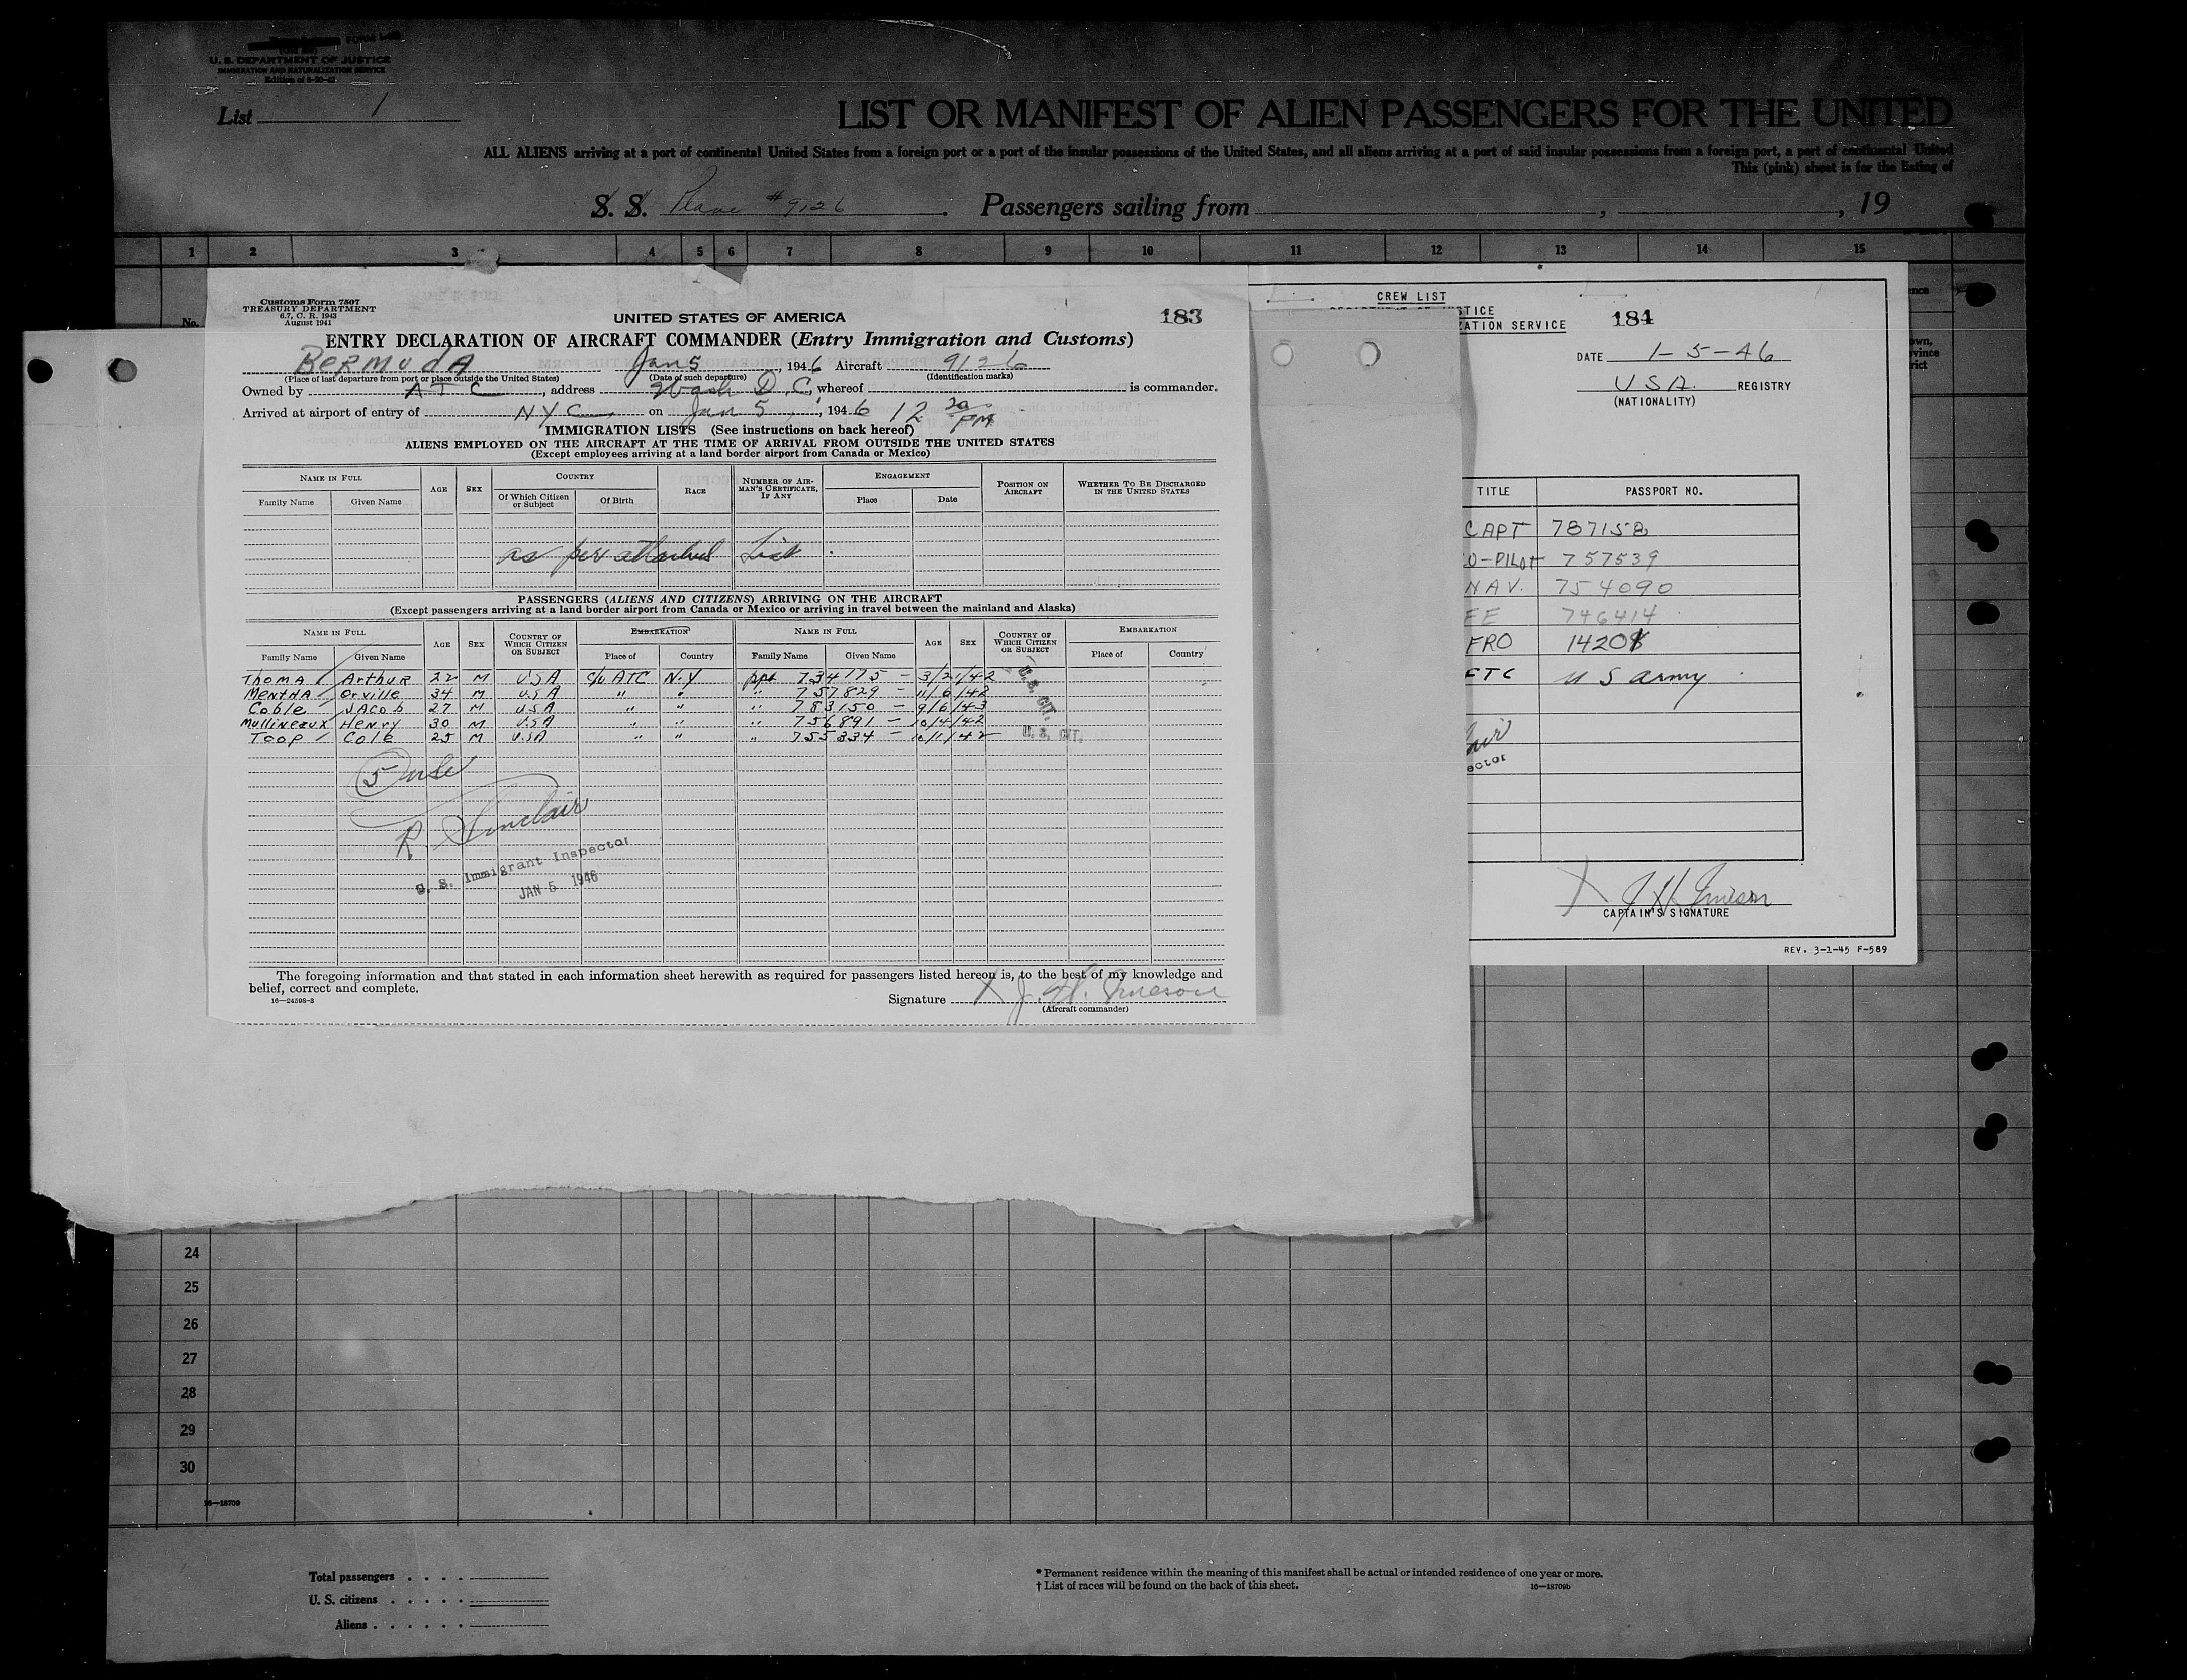 FORM I-
U. S. DEPARTMENT OF JUSTICE
IMMIGRATION AND NATURALIZATION SERVICE
Edition of
List 1
LIST OR MANIFEST OF ALIEN PASSENGERS FOR THE UNITED
ALL ALIENS arriving at a port of continental United States from a foreign port or a port of the insular possessions of the United States, and all aliens arriving at a port of said insular possessions from a foreign port, a port of continental United
This (pink) sheet is for the listing of
S. S. Plane #9126. Passengers sailing from , , 19
1 2 3 4 5 6 7 8 9 10 11 12 13 14 15
No.
Customs Form 7507
TREASURY DEPARTMENT
6.7, C. R. 1943
August 1941
UNITED STATES OF AMERICA
183
ENTRY DECLARATION OF AIRCRAFT COMMANDER (Entry Immigration and Customs)
BERMUdA Jan 5, 1946 Aircraft 9126
(Place of last departure from port or place outside the United States) (Date of such departure) (Identification marks)
Owned by ATC, address Wash D.C, whereof is commander.
Arrived at airport of entry of NYC on Jan 5, 1946 12 PM
IMMIGRATION LISTS (See instructions on back hereof)
ALIENS EMPLOYED ON THE AIRCRAFT AT THE TIME OF ARRIVAL FROM OUTSIDE THE UNITED STATES
(Except employees arriving at a land border airport from Canada or Mexico)
NAME IN FULL AGE SEX COUNTRY RACE NUMBER OF AIRMAN'S CERTIFICATE, IF ANY ENGAGEMENT POSITION ON AIRCRAFT WHETHER TO BE DISCHARGED IN THE UNITED STATES
Family Name Given Name Of Which Citizen or Subject Of Birth Place Date
as per attached List.
PASSENGERS (ALIENS AND CITIZENS) ARRIVING ON THE AIRCRAFT
(Except passengers arriving at a land border airport from Canada or Mexico or arriving in travel between the mainland and Alaska)
NAME IN FULL AGE SEX COUNTRY OF WHICH CITIZEN OR SUBJECT EMBARKATION NAME IN FULL AGE SEX COUNTRY OF WHICH CITIZEN OR SUBJECT EMBARKATION
Family Name Given Name Place of Country Family Name Given Name Place of Country
ThomA Arthur 22 M USA c/o ATC N.Y ppt 734175 - 3/21/42
MentnA Orville 34 M USA " " " 757829 - 11/6/42
Coble JAcob 27 M USA " " " 783150 - 9/6/43
Mullineaux Henry 30 M USA " " " 756891 - 10/4/42
Toop Cole 25 M USA " " " 755334 - 10/11/42
U. S. CIT.
U. S. CIT.
5 usc
R. Sinclair
U. S. Immigrant Inspector
JAN 5 1946
The foregoing information and that stated in each information sheet herewith as required for passengers listed hereon is, to the best of my knowledge and
belief, correct and complete.
16—24598-3
Signature X J. H. Imeson
(Aircraft commander)
CREW LIST
STICE
ZATION SERVICE
184
DATE 1-5-46
USA. REGISTRY
(NATIONALITY)
TITLE PASSPORT NO.
CAPT 787158
O-PILOT 757539
NAV. 754090
FE 746414
FRO 14208
FTC US army
ector
X J H Imeson
CAPTAIN'S SIGNATURE
REV. 3-1-45 F-589
24
25
26
27
28
29
30
16—18709
Total passengers
U. S. citizens
Aliens
* Permanent residence within the meaning of this manifest shall be actual or intended residence of one year or more.
† List of races will be found on the back of this sheet.
16—18709b